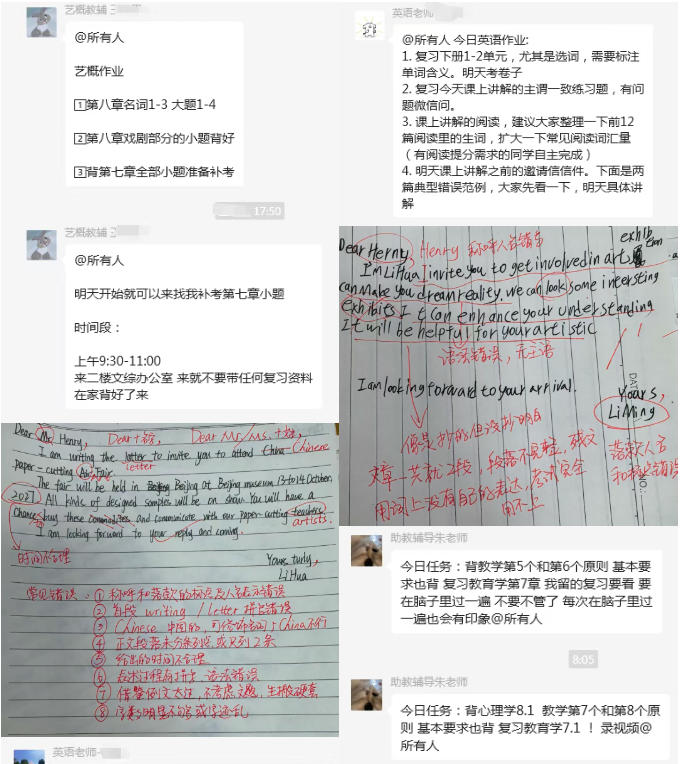 艺概教辅
@所有人
艺概作业
1第八章名词1-3 大题1-4
2第八章戏剧部分的小题背好
3背第七章全部小题准备补考
17:50
艺概教辅
@所有人
明天开始就可以来找我补考第七章小题
时间段：
上午9:30-11:00
来二楼文综办公室 来就不要带任何复习资料
在家背好了来
英语老师
@所有人 今日英语作业:
1. 复习下册1-2单元，尤其是选词，需要标注
单词含义。明天考卷子
2. 复习今天课上讲解的主谓一致练习题，有问
题微信问。
3. 课上讲解的阅读，建议大家整理一下前12
篇阅读里的生词，扩大一下常见阅读词汇量
（有阅读提分需求的同学自主完成）
4. 明天课上讲解之前的邀请信信件。下面是两
篇典型错误范例，大家先看一下，明天具体讲
解
Dear Herny, Henry 称呼人名错误
I'm LiHua I invite you to get involved in art
can make you dream reality. we can look some intersting
exhibits I t can enhance your understanding
It will be helpful for your artistic
语法错误，无主语
I am looking forward to your arrival.
Yours,
LiMing
像是抄的但没抄明白
文章一共就2段，段落不完整，残文
用词上没有自己的表达，考试完全
用不上
落款人名
Dear Mr. Henry, Dear+名, Dear Mr./Ms.+姓,
I am writing the letter to invite you to attend China-Chinese
letter
paper-cutting Fair.
The fair will be held in Beijing at Beijing museum 13to14 October,
2021 All kinds of designed samples will be on show. You will have a
chance buy these commodites and communicate with our paper-cutting teachers
artists.
I am looking forward to your reply and coming.
时间不合理
Yours turly,
LiHua
常见错误：① 称呼和落款的标点及人名书写错误
② 首段 writing / letter 拼写错误
③ Chinese 中国的，可修饰名词，China不行
④ 正文段落未分条列点，或只列2条
⑤ 给出的时间不合理
⑥ 表述过程有拼写、语法错误
⑦ 借鉴例文太过，不考虑文题，生搬硬套
⑧ 字数明显不够或字迹乱
英语老师-
助教辅导朱老师
今日任务：背教学第5个和第6个原则 基本要
求也背 复习教育学第7章 我留的复习要看 要
在脑子里过一遍 不要不管了 每次在脑子里过
一遍也会有印象@所有人
8:05
助教辅导朱老师
今日任务：背心理学8.1 教学第7个和第8个原
则 基本要求也背 复习教育学7.1 ！录视频@
所有人